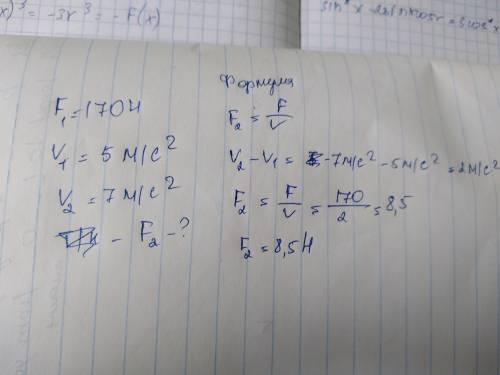 x)³ = -3x³ = -F(x)
Формула
F₁ = 170 Н
V₁ = 5 м/с²
V₂ = 7 м/с²
- F₂ - ?
F₂ = F/V
V₂ - V₁ = 7 м/с² - 5 м/с² = 2 м/с²
F₂ = F/V = 170/2 = 8,5
F₂ = 8,5 Н